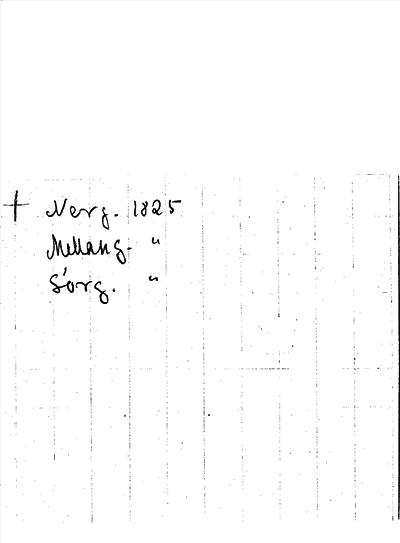 † Nerg. 1825
Mellang. "
Sörg. "